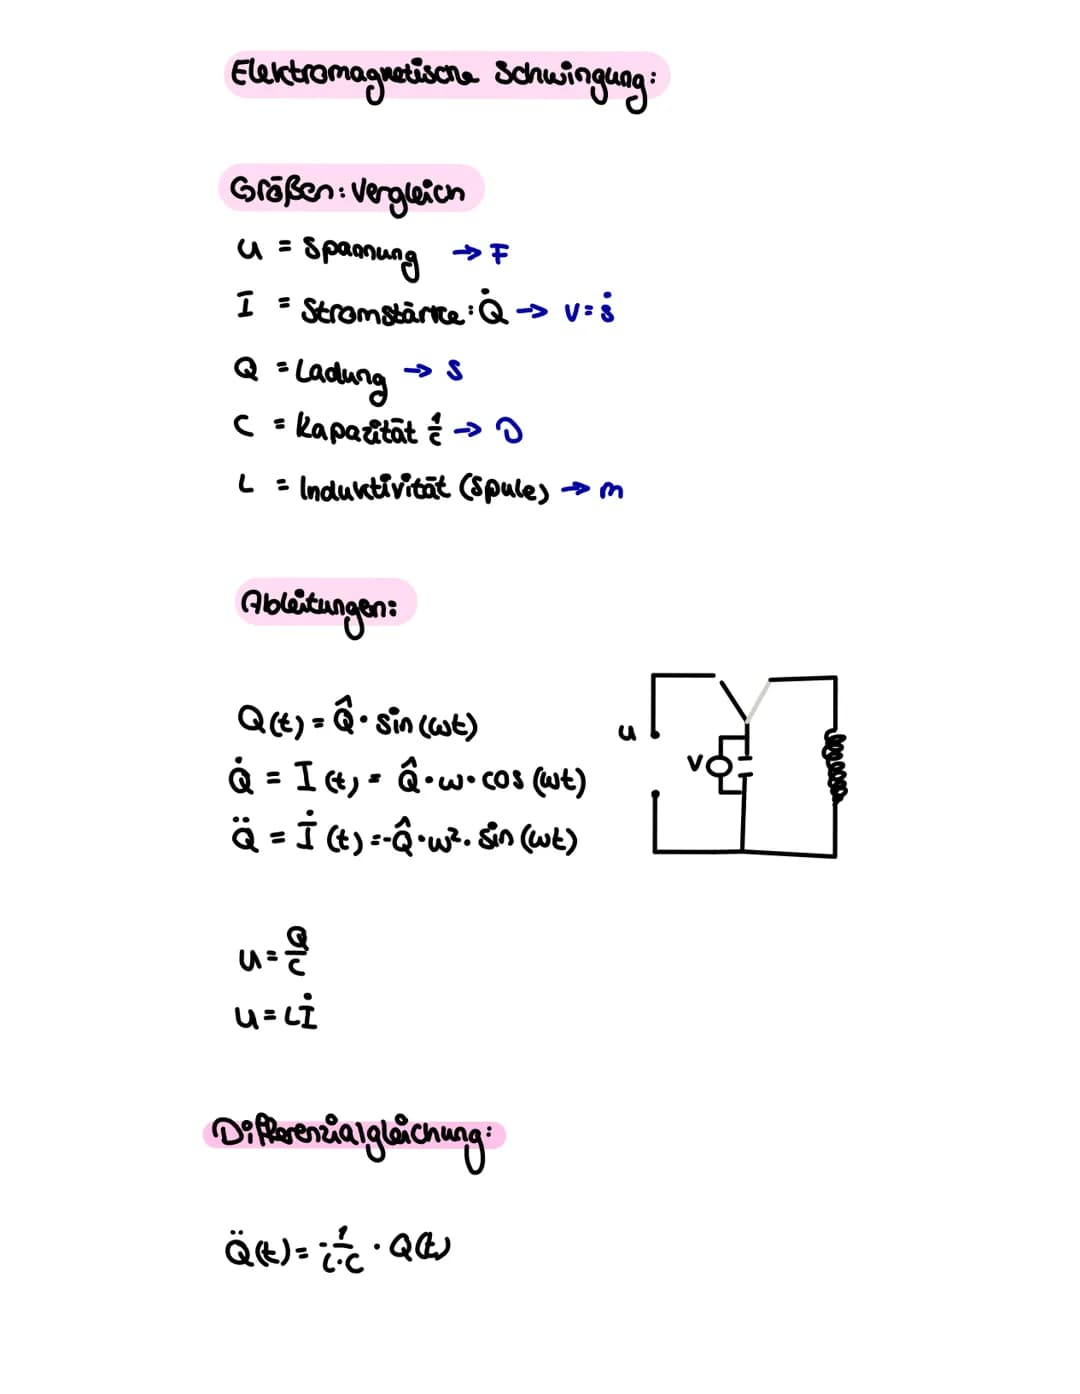 Elektromagnetische Schwingung:
Größen: Vergleich
U = Spannung → F
I = Stromstärke: Q̇ → v = ṡ
Q = Ladung → s
C = Kapazität 1/C → D
L = Induktivität (Spule) → m
Ableitungen:
Q(t) = Q̂ · sin(ωt)
Q̇ = I(t) = Q̂ · ω · cos(ωt)
Q̈ = İ(t) = -Q̂ · ω² · sin(ωt)
U
V
U = Q/C
U = Lİ
Differenzialgleichung:
Q̈(t) = -1/(L·C) · Q(t)